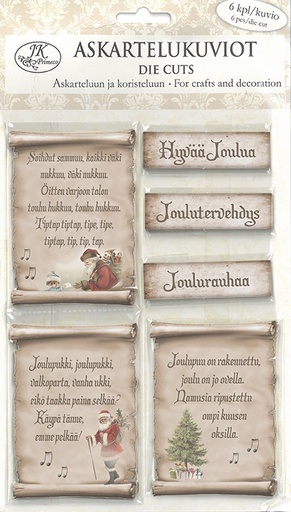 JK
Primeco
ASKARTELUKUVIOT
DIE CUTS
Askarteluun ja koristeluun • For crafts and decoration
6 kpl/kuvio
6 pcs/die cut
Soihdut sammuu, kaikki väki
nukkuu, väki nukkuu.
Öitten varjoon talon
touhu hukkuu, touhu hukkuu.
Tiptap tiptap, tipe, tipe,
tiptap, tip, tip, tap.
Hyvää Joulua
Joulutervehdys
Joulurauhaa
Joulupukki, joulupukki,
valkoparta, vanha ukki,
eikö taakka paina selkää?
Käypä tänne,
emme pelkää!
Joulupuu on rakennettu,
joulu on jo ovella.
Namusia ripustettu
ompi kuusen
oksilla.